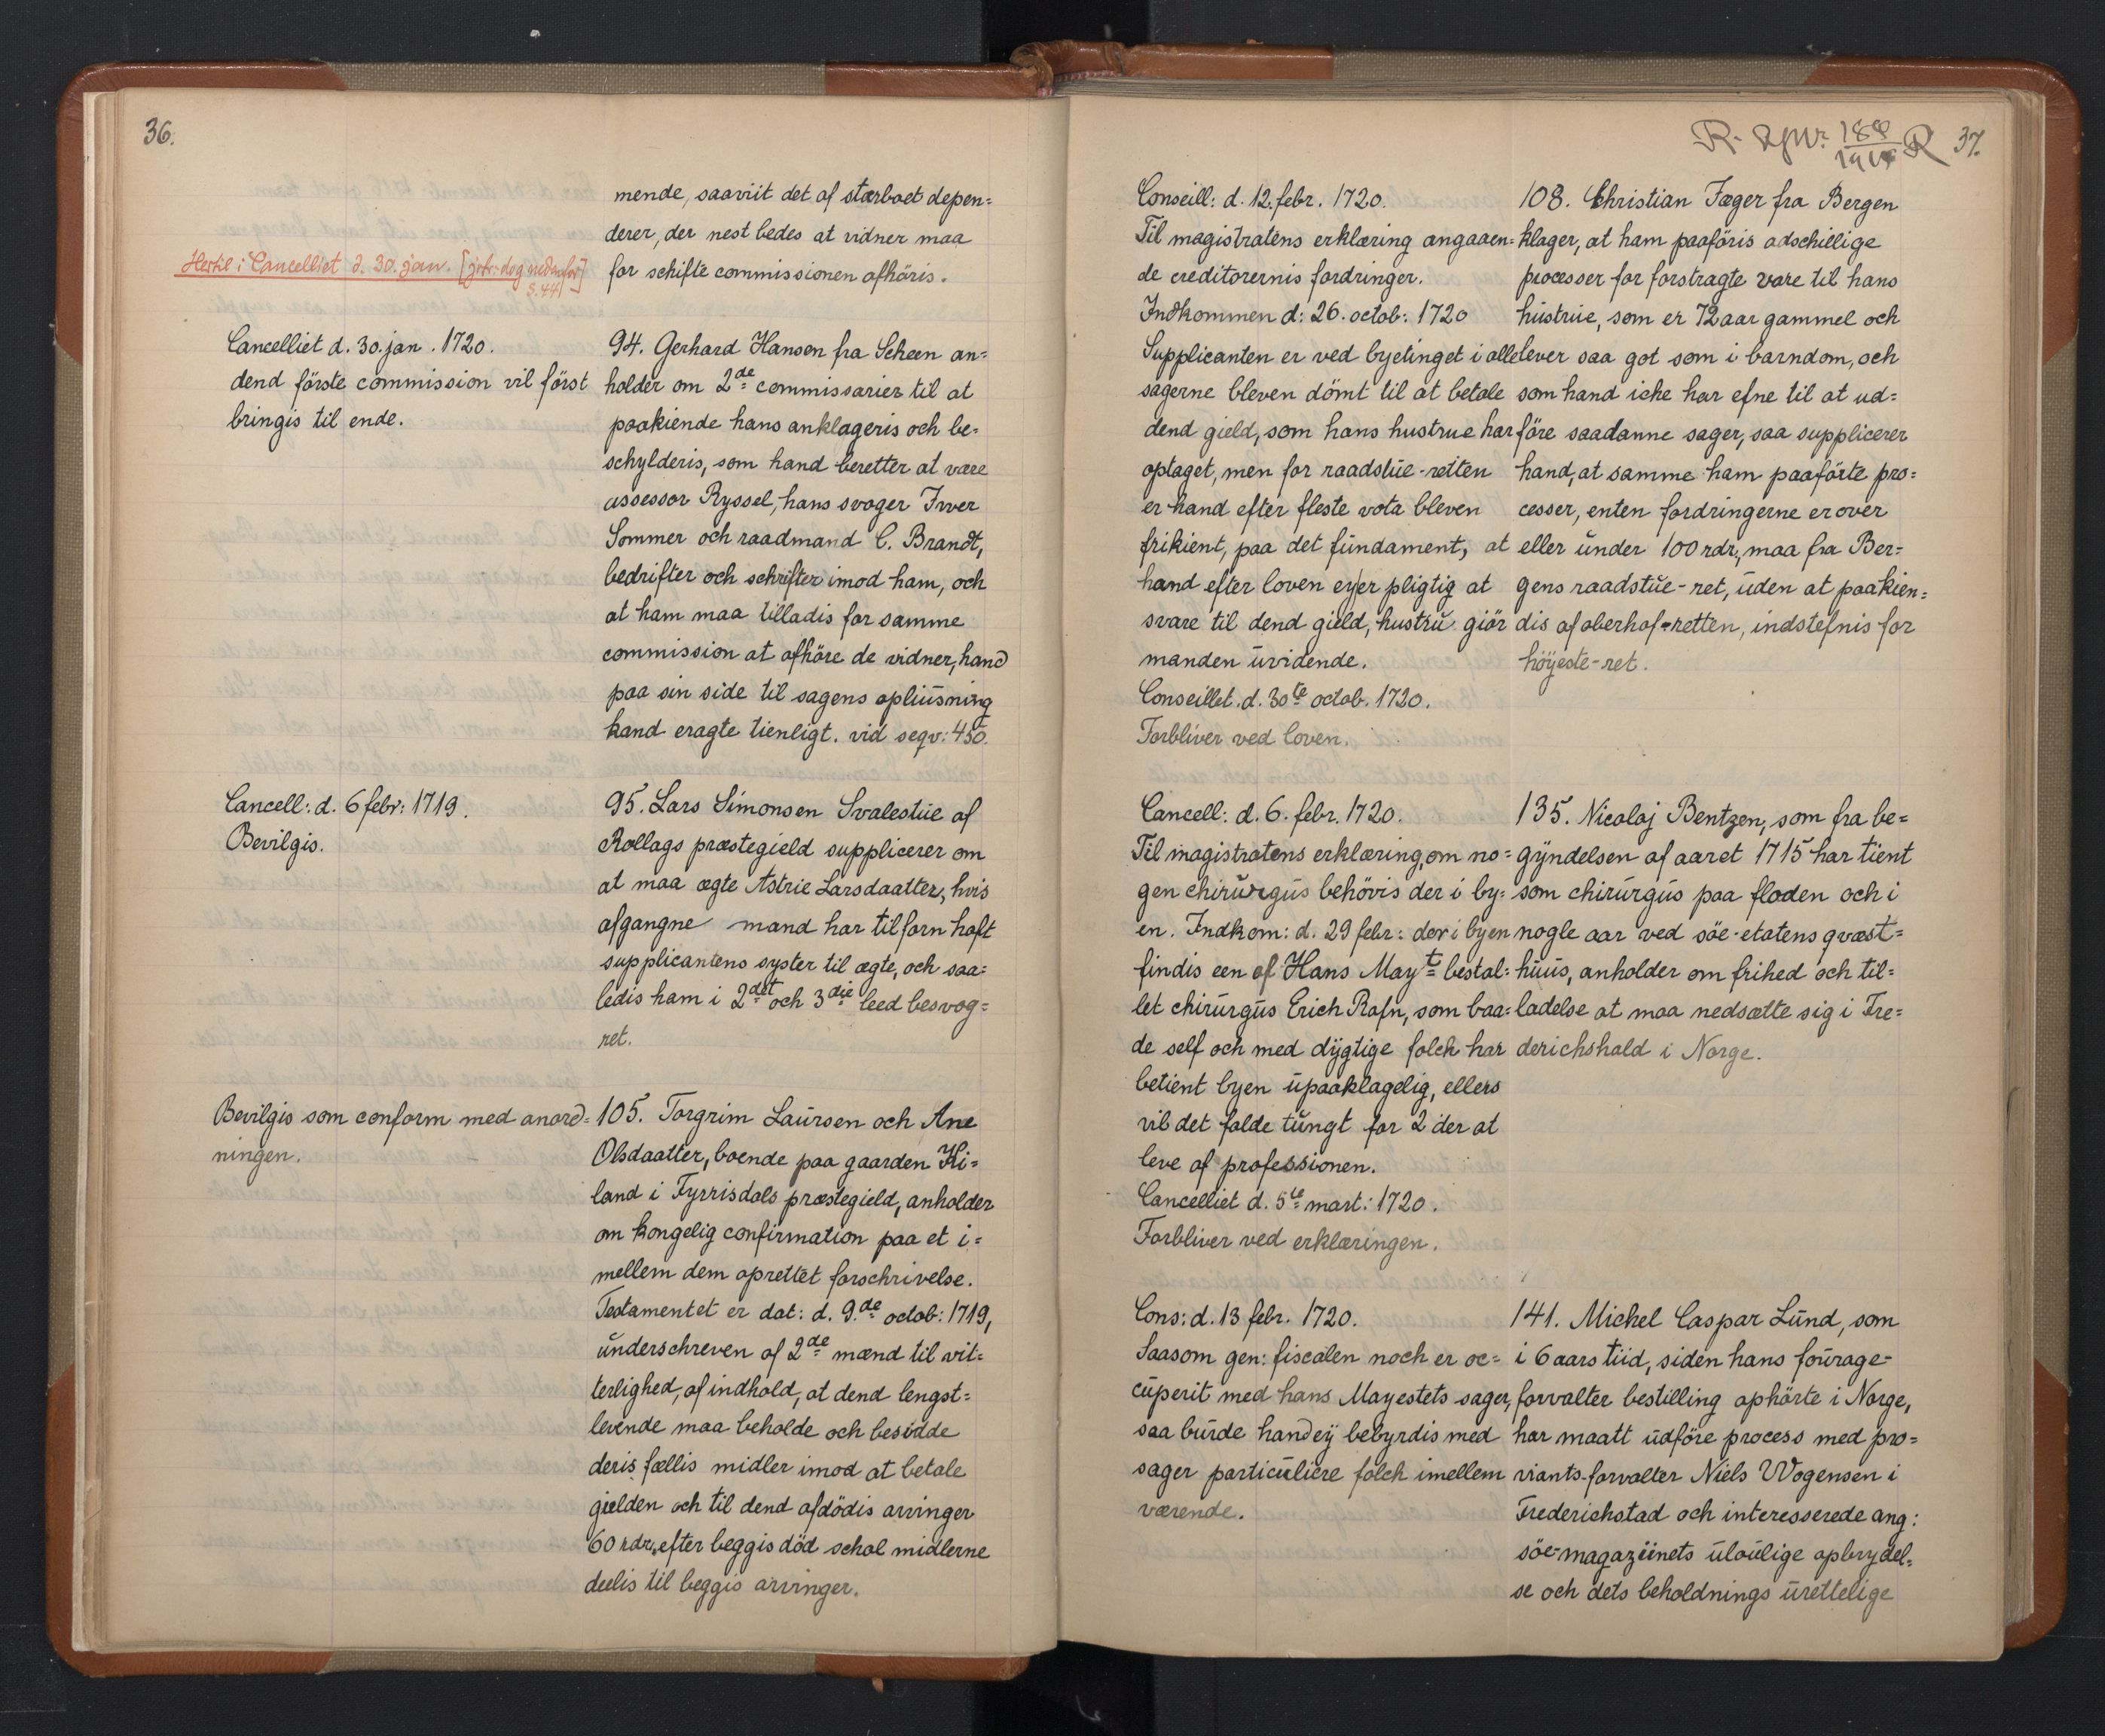 36.
mende, saaviit det af stærboet depen=
derer, der nest bedes at vidner maa
for schifte commissionen afhöris.
Hertil: Cancelliet d. 30. jan. [jvfr. dog nedenfor]
S. 44
Cancelliet d. 30. jan. 1720.
dend förste commission vil först
bringis til ende.
94. Gerhard Hansen fra Scheen an=
holder om 2de commissarier til at
paakiende hans anklageris och be=
schylderis, som hand beretter at være
assessor Ryssel, hans svoger Iwer
Sommer och raadmand C. Brandt,
bedrifter och schrifter imod ham, och
at ham maa tilladis for samme
commission at afhöre de vidner, hand
paa sin side til sagens opliusning
kand eragte tienligt. vid seqv: 450.
Cancell: d. 6 febr: 1719.
Bevilgis.
95. Lars Simonsen Svalestue af
Rollags præstegield supplicerer om
at maa ægte Astrie Larsdaatter, hvis
afgangne mand har tilforn haft
supplicantens syster til ægte, och saa=
ledis ham i 2det och 3die leed besvog=
ret.
Bevilgis som conform med anord=
ningen.
105. Torgrim Laursen och Ane
Olsdaatter, boende paa gaarden Ki=
land i Fyrrisdals præstegield, anholder
om kongelig confirmation paa et i=
mellem dem oprettet forschrivelse.
Testamentet er dat: d. 9de octob: 1719,
underschreven af 2de mænd til vit=
terlighed, af indhold, at dend lengst=
levende maa beholde och besidde
deris fællis midler imod at betale
gielden och til dend afdödis arvinger
60 rdr, efter beggis död schal midlerne
deelis til beggis arvinger.
37.
Conseill: d. 12. febr. 1720.
Til magistratens erklæring angaaen=
de creditorernis fordringer.
Indkommen d: 26. octob: 1720
Supplicanten er ved byetinget i alle
sagerne bleven dömt til at betale
dend gield, som hans hustrue har
optaget, men for raadstue-retten
er hand efter fleste vota bleven
frikient, paa det fundament, at
hand efter loven ey er pligtig at
svare til dend gield, hustru giör
manden uvidende.
Conseillet. d. 30te octob. 1720.
Forbliver ved loven.
108. Christian Fæger fra Bergen
klager, at ham paaföris adschillige
processer for forstragte vare til hans
hustrue, som er 72 aar gammel och
lever saa got som i barndom, och
som hand icke har efne til at ud=
före saadanne sager, saa supplicerer
hand, at samme ham paaförte pro=
cesser, enten fordringerne er over
eller under 100 rdr, maa fra Ber=
gens raadstue-ret, uden at paakien=
dis af oberhof-retten, indstefnis for
höyeste-ret.
Cancell: d. 6. febr. 1720.
Til magistratens erklæring, om no=
gen chirurgus behövis der i by=
en. Indkom: d. 29 febr: der i byen
findis een af Hans Mayt bestal=
let chirurgus Erich Rafn, som baa=
de self och med dygtige folch har
betient byen upaaklagelig, ellers
vil det falde tungt for 2 der at
leve af professionen.
Cancelliet d. 5te mart: 1720.
Forbliver ved erklæringen.
135. Nicolaj Bentzen, som fra be=
gyndelsen af aaret 1715 har tient
som chirurgus paa floden och i
nogle aar ved söe-etatens qvæst=
huus, anholder om frihed och til=
ladelse at maa nedsætte sig i Fre=
derichshald i Norge.
Cons: d. 13 febr. 1720.
Saasom gen: fiscalen noch er oc=
cuperit med hans Mayestets sager,
saa burde hand ey bebyrdis med
sager particuliere folch imellem
værende.
141. Michel Caspar Lund, som
i 6 aars tiid, siden hans fourage-
forvalter bestilling ophörte i Norge,
har maatt udföre process med pro=
viants-forvalter Niels Wogensen i
Frederichstad och interesserede ang:
söe-magaziinets uloulige opbrydel=
se och dets beholdnings urettelige